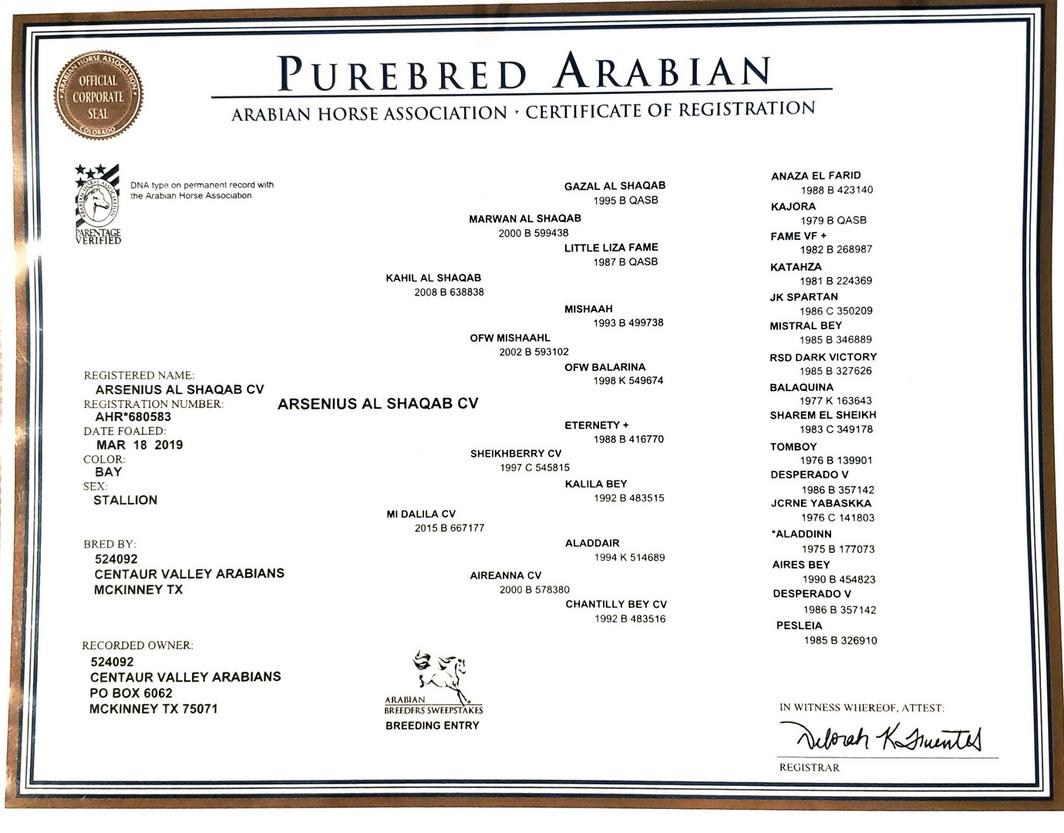 PUREBRED ARABIAN
ARABIAN HORSE ASSOCIATION · CERTIFICATE OF REGISTRATION
ARABIAN HORSE ASSOCIATION
OFFICIAL
CORPORATE
SEAL
COLORADO
DNA type on permanent record with
the Arabian Horse Association
PARENTAGE
VERIFIED
REGISTERED NAME:
ARSENIUS AL SHAQAB CV
REGISTRATION NUMBER:
AHR*680583
DATE FOALED:
MAR 18 2019
COLOR:
BAY
SEX:
STALLION
BRED BY:
524092
CENTAUR VALLEY ARABIANS
MCKINNEY TX
RECORDED OWNER:
524092
CENTAUR VALLEY ARABIANS
PO BOX 6062
MCKINNEY TX 75071
ARSENIUS AL SHAQAB CV
KAHIL AL SHAQAB
2008 B 638838
MI DALILA CV
2015 B 667177
MARWAN AL SHAQAB
2000 B 599438
OFW MISHAAHL
2002 B 593102
SHEIKHBERRY CV
1997 C 545815
AIREANNA CV
2000 B 578380
GAZAL AL SHAQAB
1995 B QASB
LITTLE LIZA FAME
1987 B QASB
MISHAAH
1993 B 499738
OFW BALARINA
1998 K 549674
ETERNETY +
1988 B 416770
KALILA BEY
1992 B 483515
ALADDAIR
1994 K 514689
CHANTILLY BEY CV
1992 B 483516
ANAZA EL FARID
1988 B 423140
KAJORA
1979 B QASB
FAME VF +
1982 B 268987
KATAHZA
1981 B 224369
JK SPARTAN
1986 C 350209
MISTRAL BEY
1985 B 346889
RSD DARK VICTORY
1985 B 327626
BALAQUINA
1977 K 163643
SHAREM EL SHEIKH
1983 C 349178
TOMBOY
1976 B 139901
DESPERADO V
1986 B 357142
JCRNE YABASKKA
1976 C 141803
*ALADDINN
1975 B 177073
AIRES BEY
1990 B 454823
DESPERADO V
1986 B 357142
PESLEIA
1985 B 326910
ARABIAN
BREEDERS SWEEPSTAKES
BREEDING ENTRY
IN WITNESS WHEREOF, ATTEST:
Deborah K Fuentes
REGISTRAR